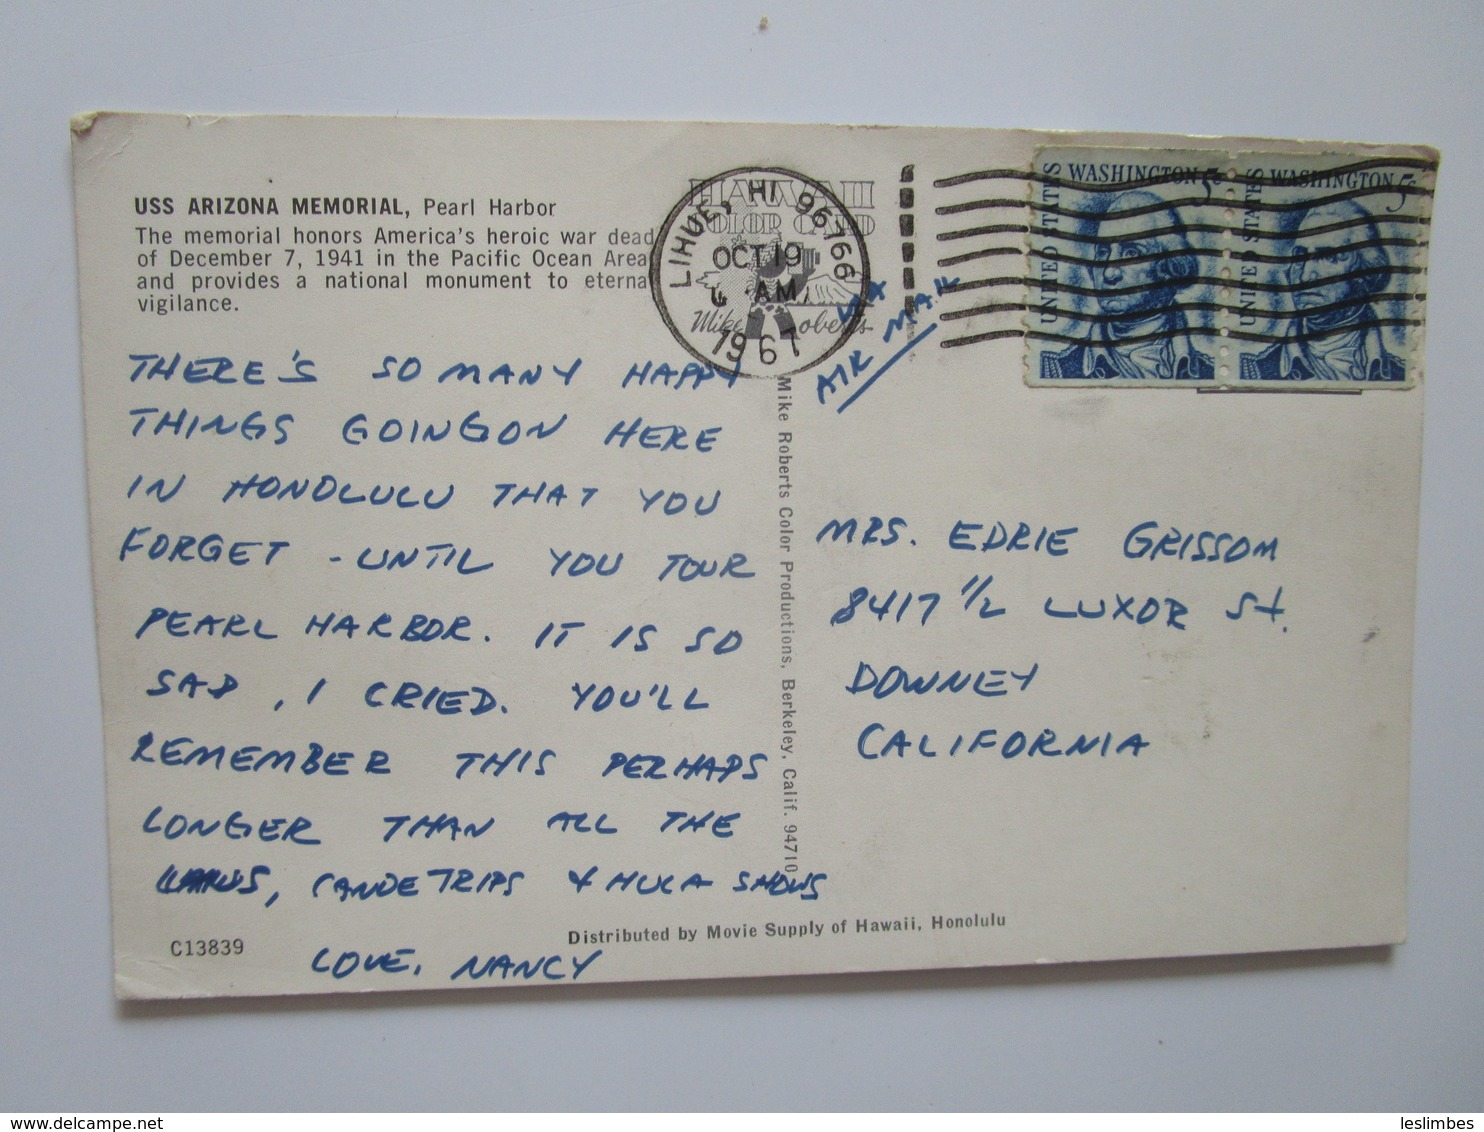 USS ARIZONA MEMORIAL, Pearl Harbor
The memorial honors America's heroic war dead
of December 7, 1941 in the Pacific Ocean Area
and provides a national monument to eternal
vigilance.
HAWAII
COLOR CARD
Mike Roberts
LIHUE, HI 96766
OCT 19
AM
1967
VIA
AIR MAIL
UNITED STATES WASHINGTON 5c
UNITED STATES WASHINGTON 5c
THERE'S SO MANY HAPPY
THINGS GOINGON HERE
IN HONOLULU THAT YOU
FORGET - UNTIL YOU TOUR
PEARL HARBOR. IT IS SO
SAD, I CRIED. YOU'LL
REMEMBER THIS PERHAPS
LONGER THAN ALL THE
CANOE TRIPS & HULA SHOWS
LOVE, NANCY
Mike Roberts Color Productions, Berkeley, Calif. 94710
MRS. EDRIE GRISSOM
8417 1/2 LUXOR St.
DOWNEY
CALIFORNIA
C13839
Distributed by Movie Supply of Hawaii, Honolulu
leslimbes
delcampe.net